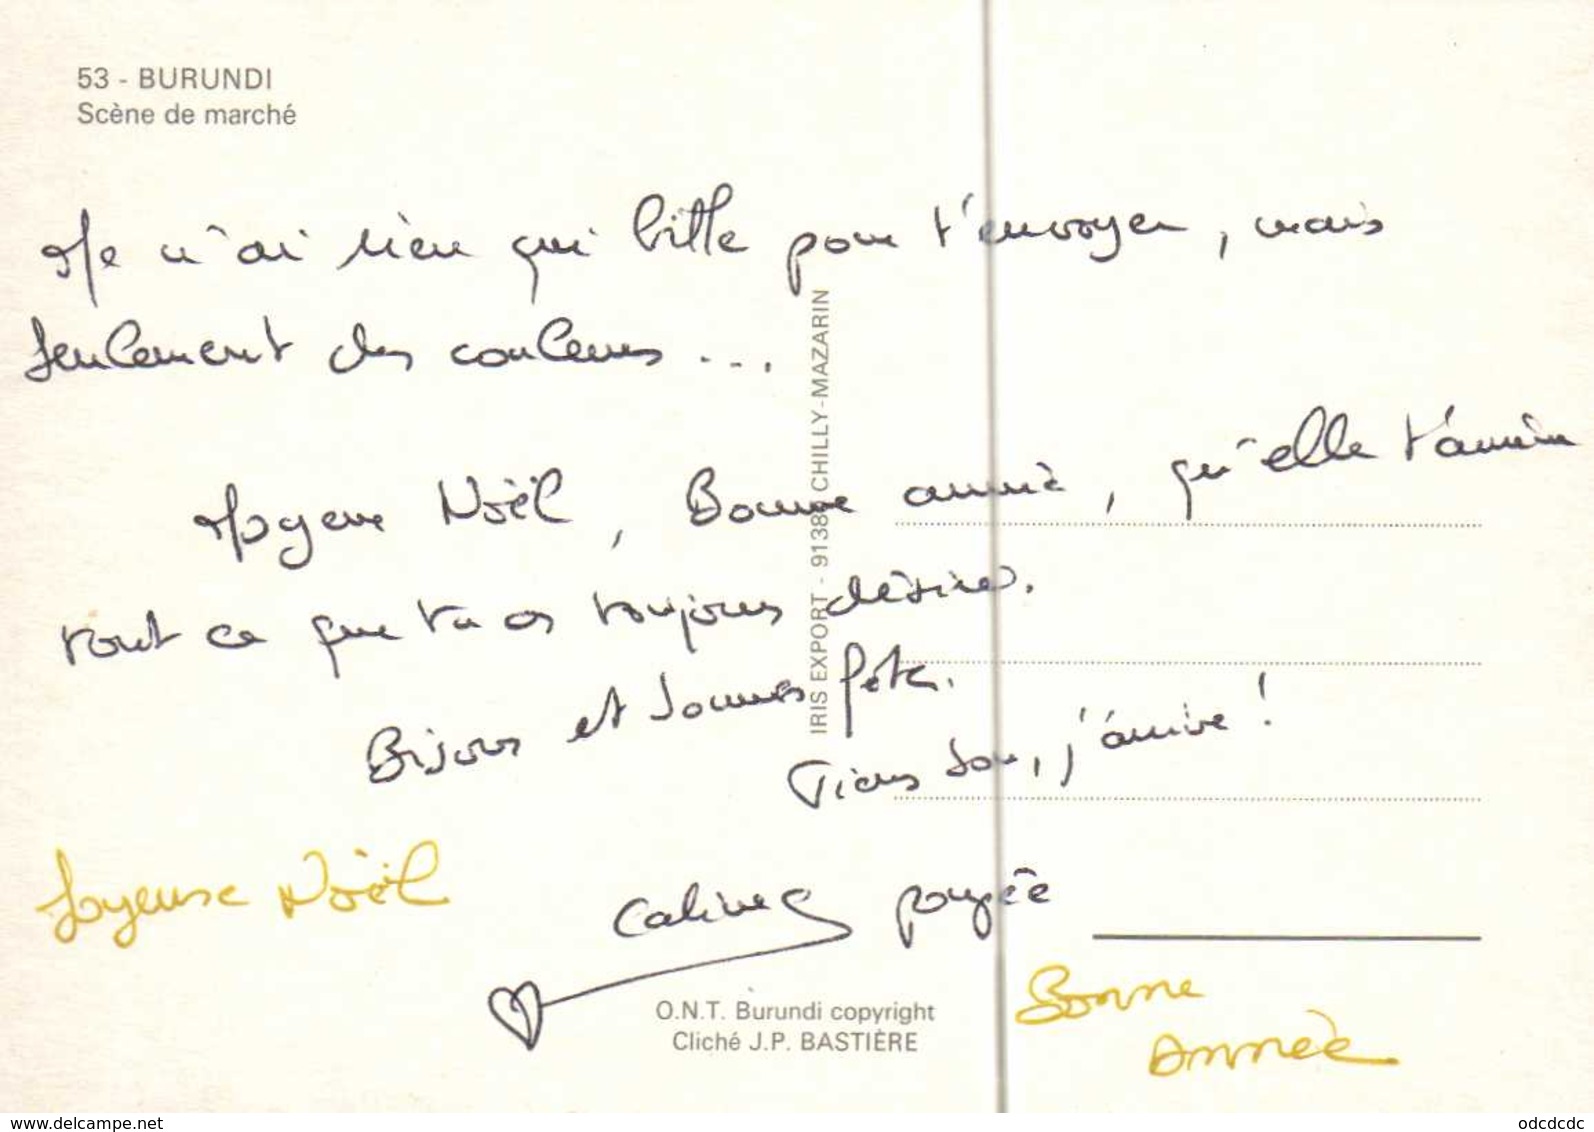 53 - BURUNDI
Scène de marché
Je n'ai rien qui brille pour t'envoyer, mais
seulement des couleurs ...
Joyeux Noël, Bonne année, qu'elle t'amène
tout ce que tu as toujours désiré.
Bisous et bonnes fêtes.
Tiens bon, j'arrive !
Joyeuse Noël
Caline poupée
Bonne
Année
IRIS EXPORT - 91380 CHILLY-MAZARIN
O.N.T. Burundi copyright
Cliché J.P. BASTIÈRE
www.delcampe.net
odcdcdc